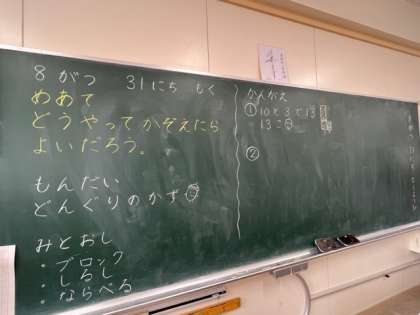 8がつ 31にち もく
めあて
どうやってかぞえたら
よいだろう。
もんだい
どんぐりのかず
みとおし
・ブロック
・しるし
・ならべる
かんがえ
① 10と3で13
13こ
②